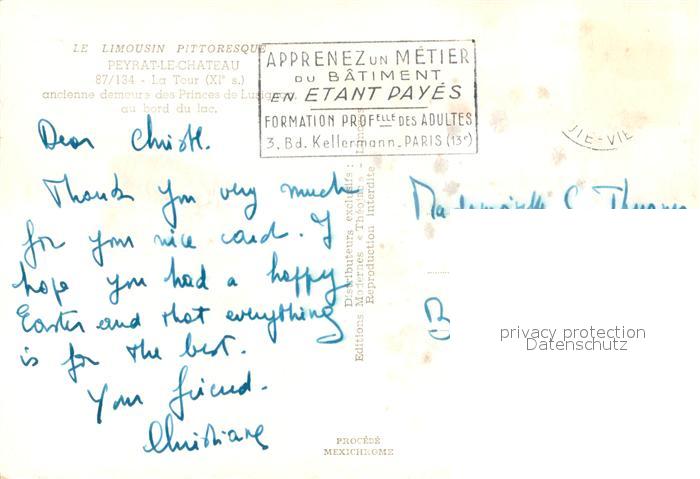 LE LIMOUSIN PITTORESQUE
PEYRAT-LE-CHATEAU
87/134 - La Tour (XIe s.)
ancienne demeure des Princes de
au bord du lac.
APPRENEZ UN MÉTIER
DU BÂTIMENT
EN ETANT PAYÉS
FORMATION PROFELLE DES ADULTES
3, Bd. Kellermann. PARIS (13e)
Dear Christl.
Thank you very much
for your nice card. I
hope you had a happy
Easter and that everything
is for the best.
Your friend.
Christiane
Distributeurs exclusifs :
Editions Modernes « Théojac » - Limoges
Reproduction interdite
PROCÉDÉ
MEXICHROME
Mademoiselle C.
privacy protection
Datenschutz